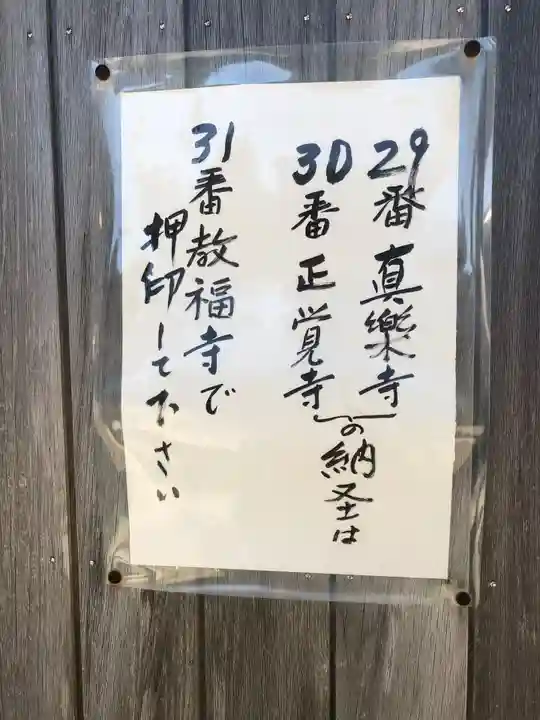 29番真樂寺
30番正覚寺
の納圣は
31番教福寺で
押印して下さい